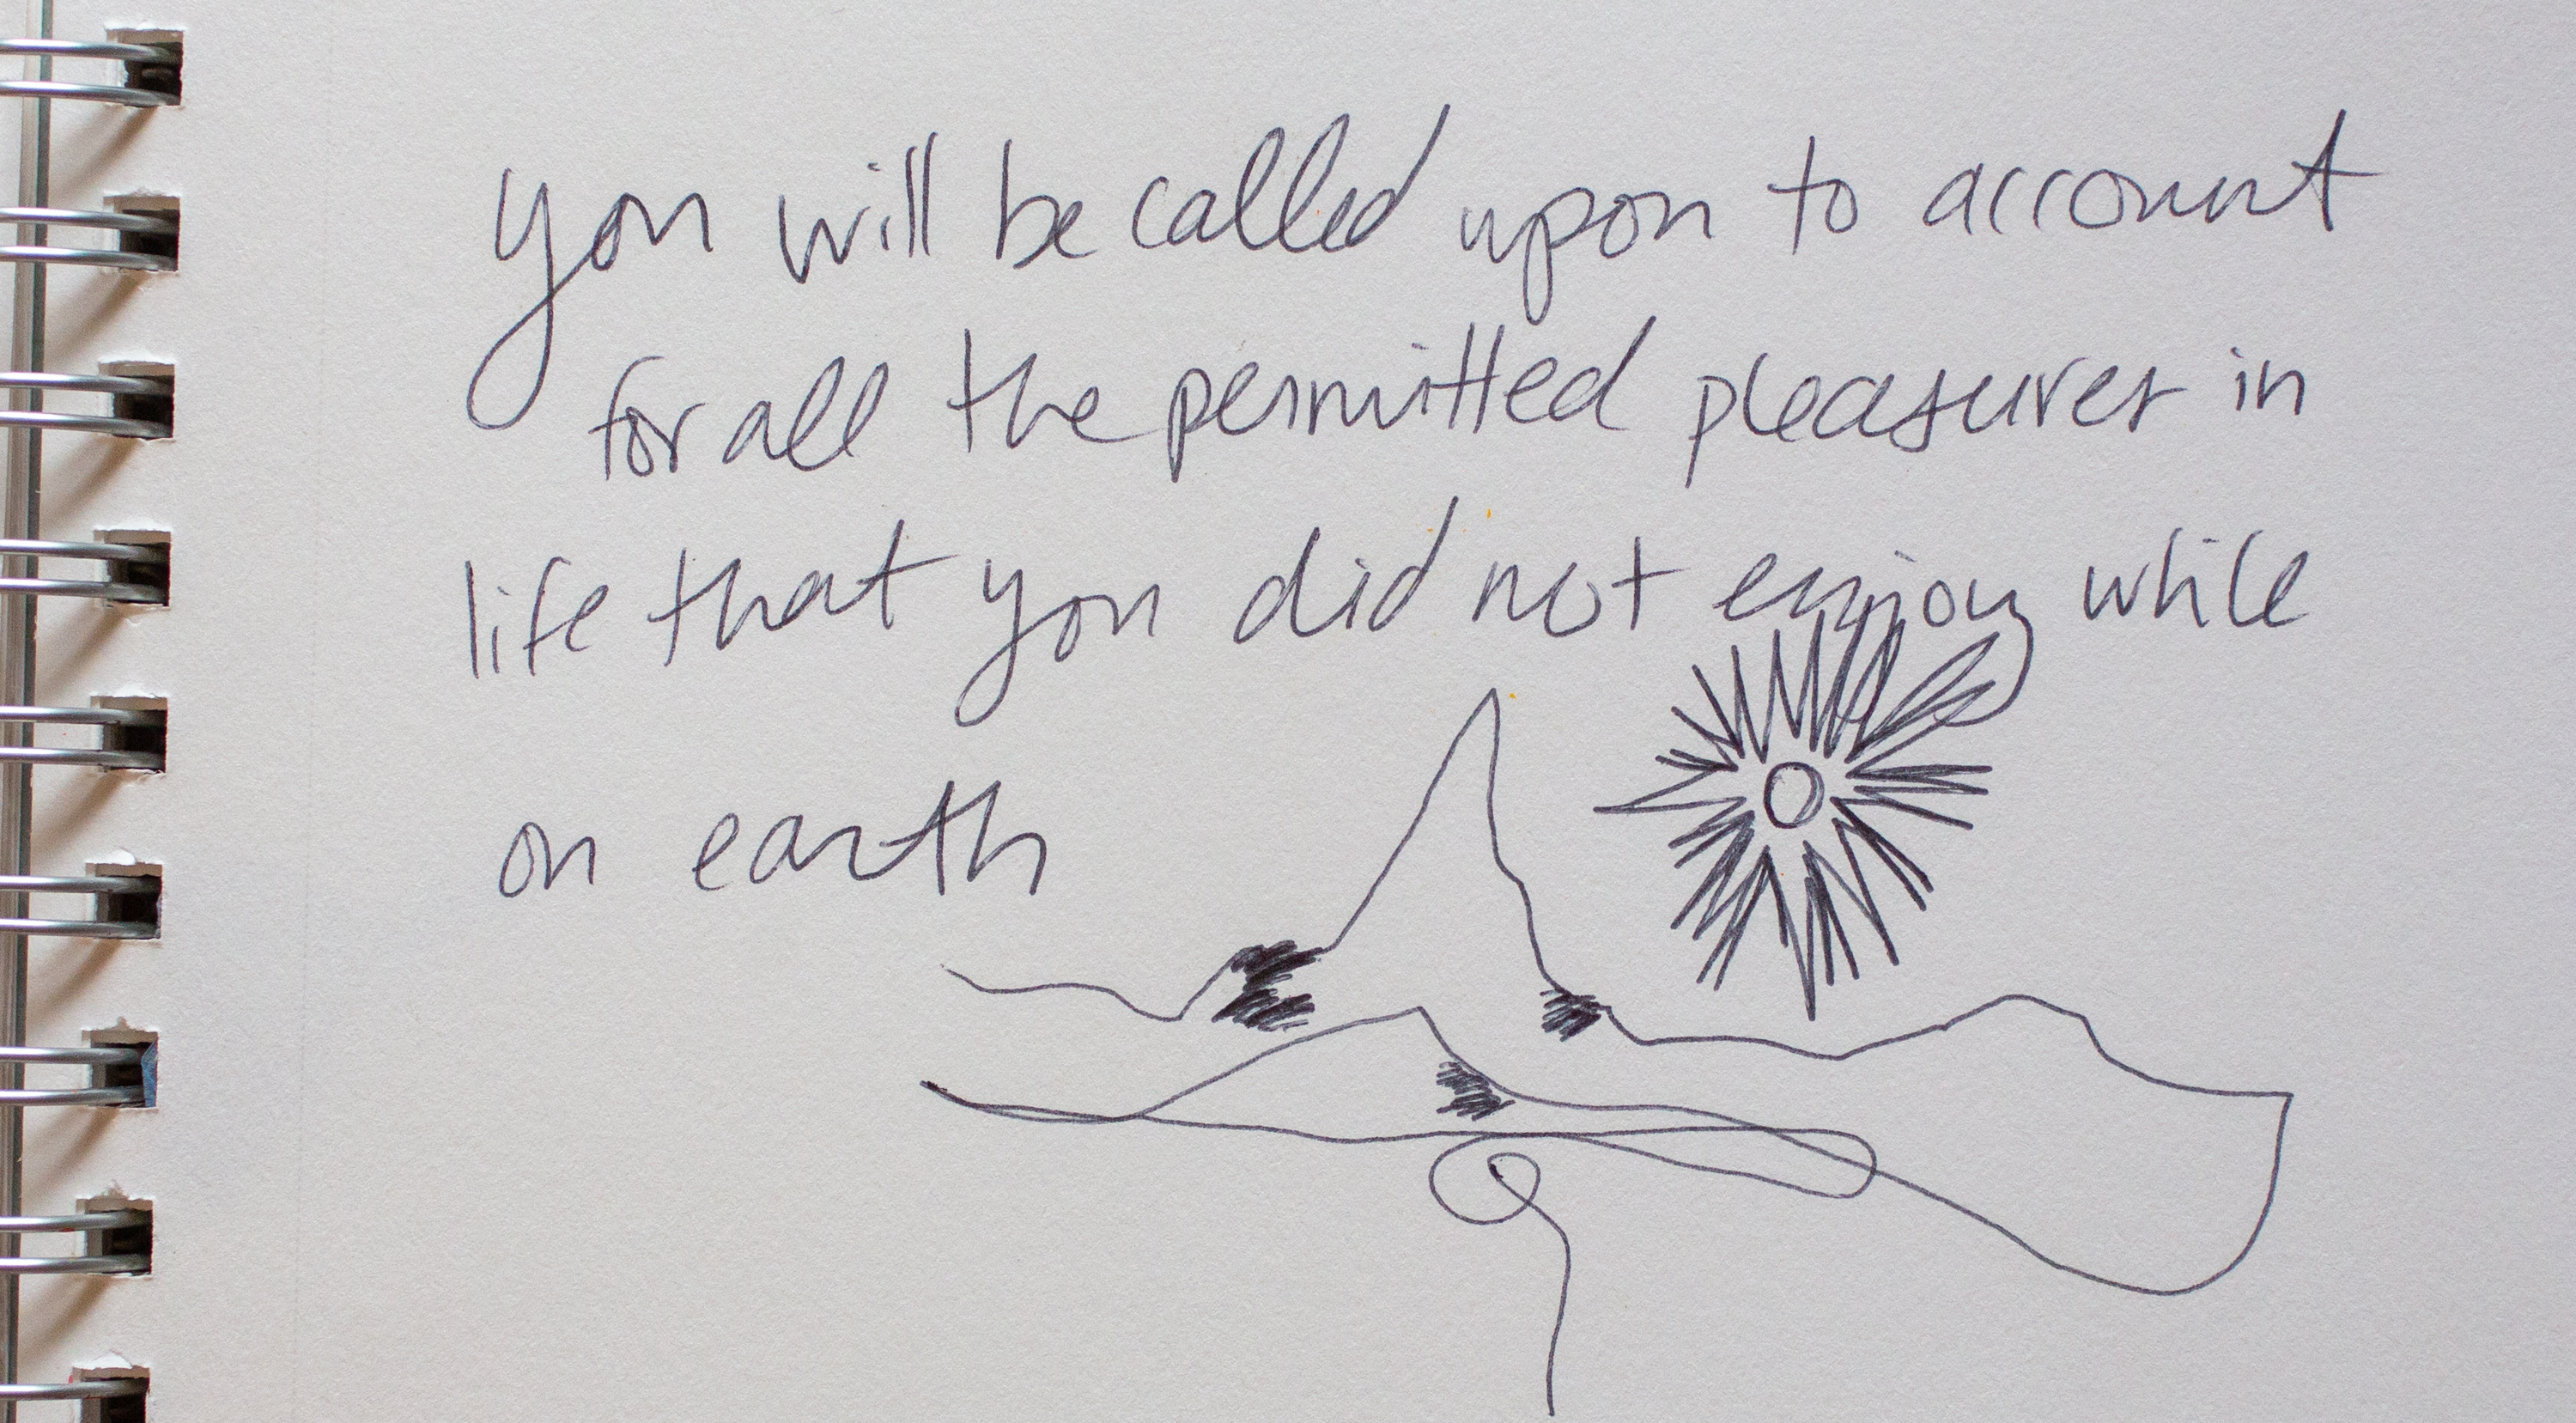 you will be called upon to account
for all the permitted pleasures in
life that you did not enjoy while
on earth